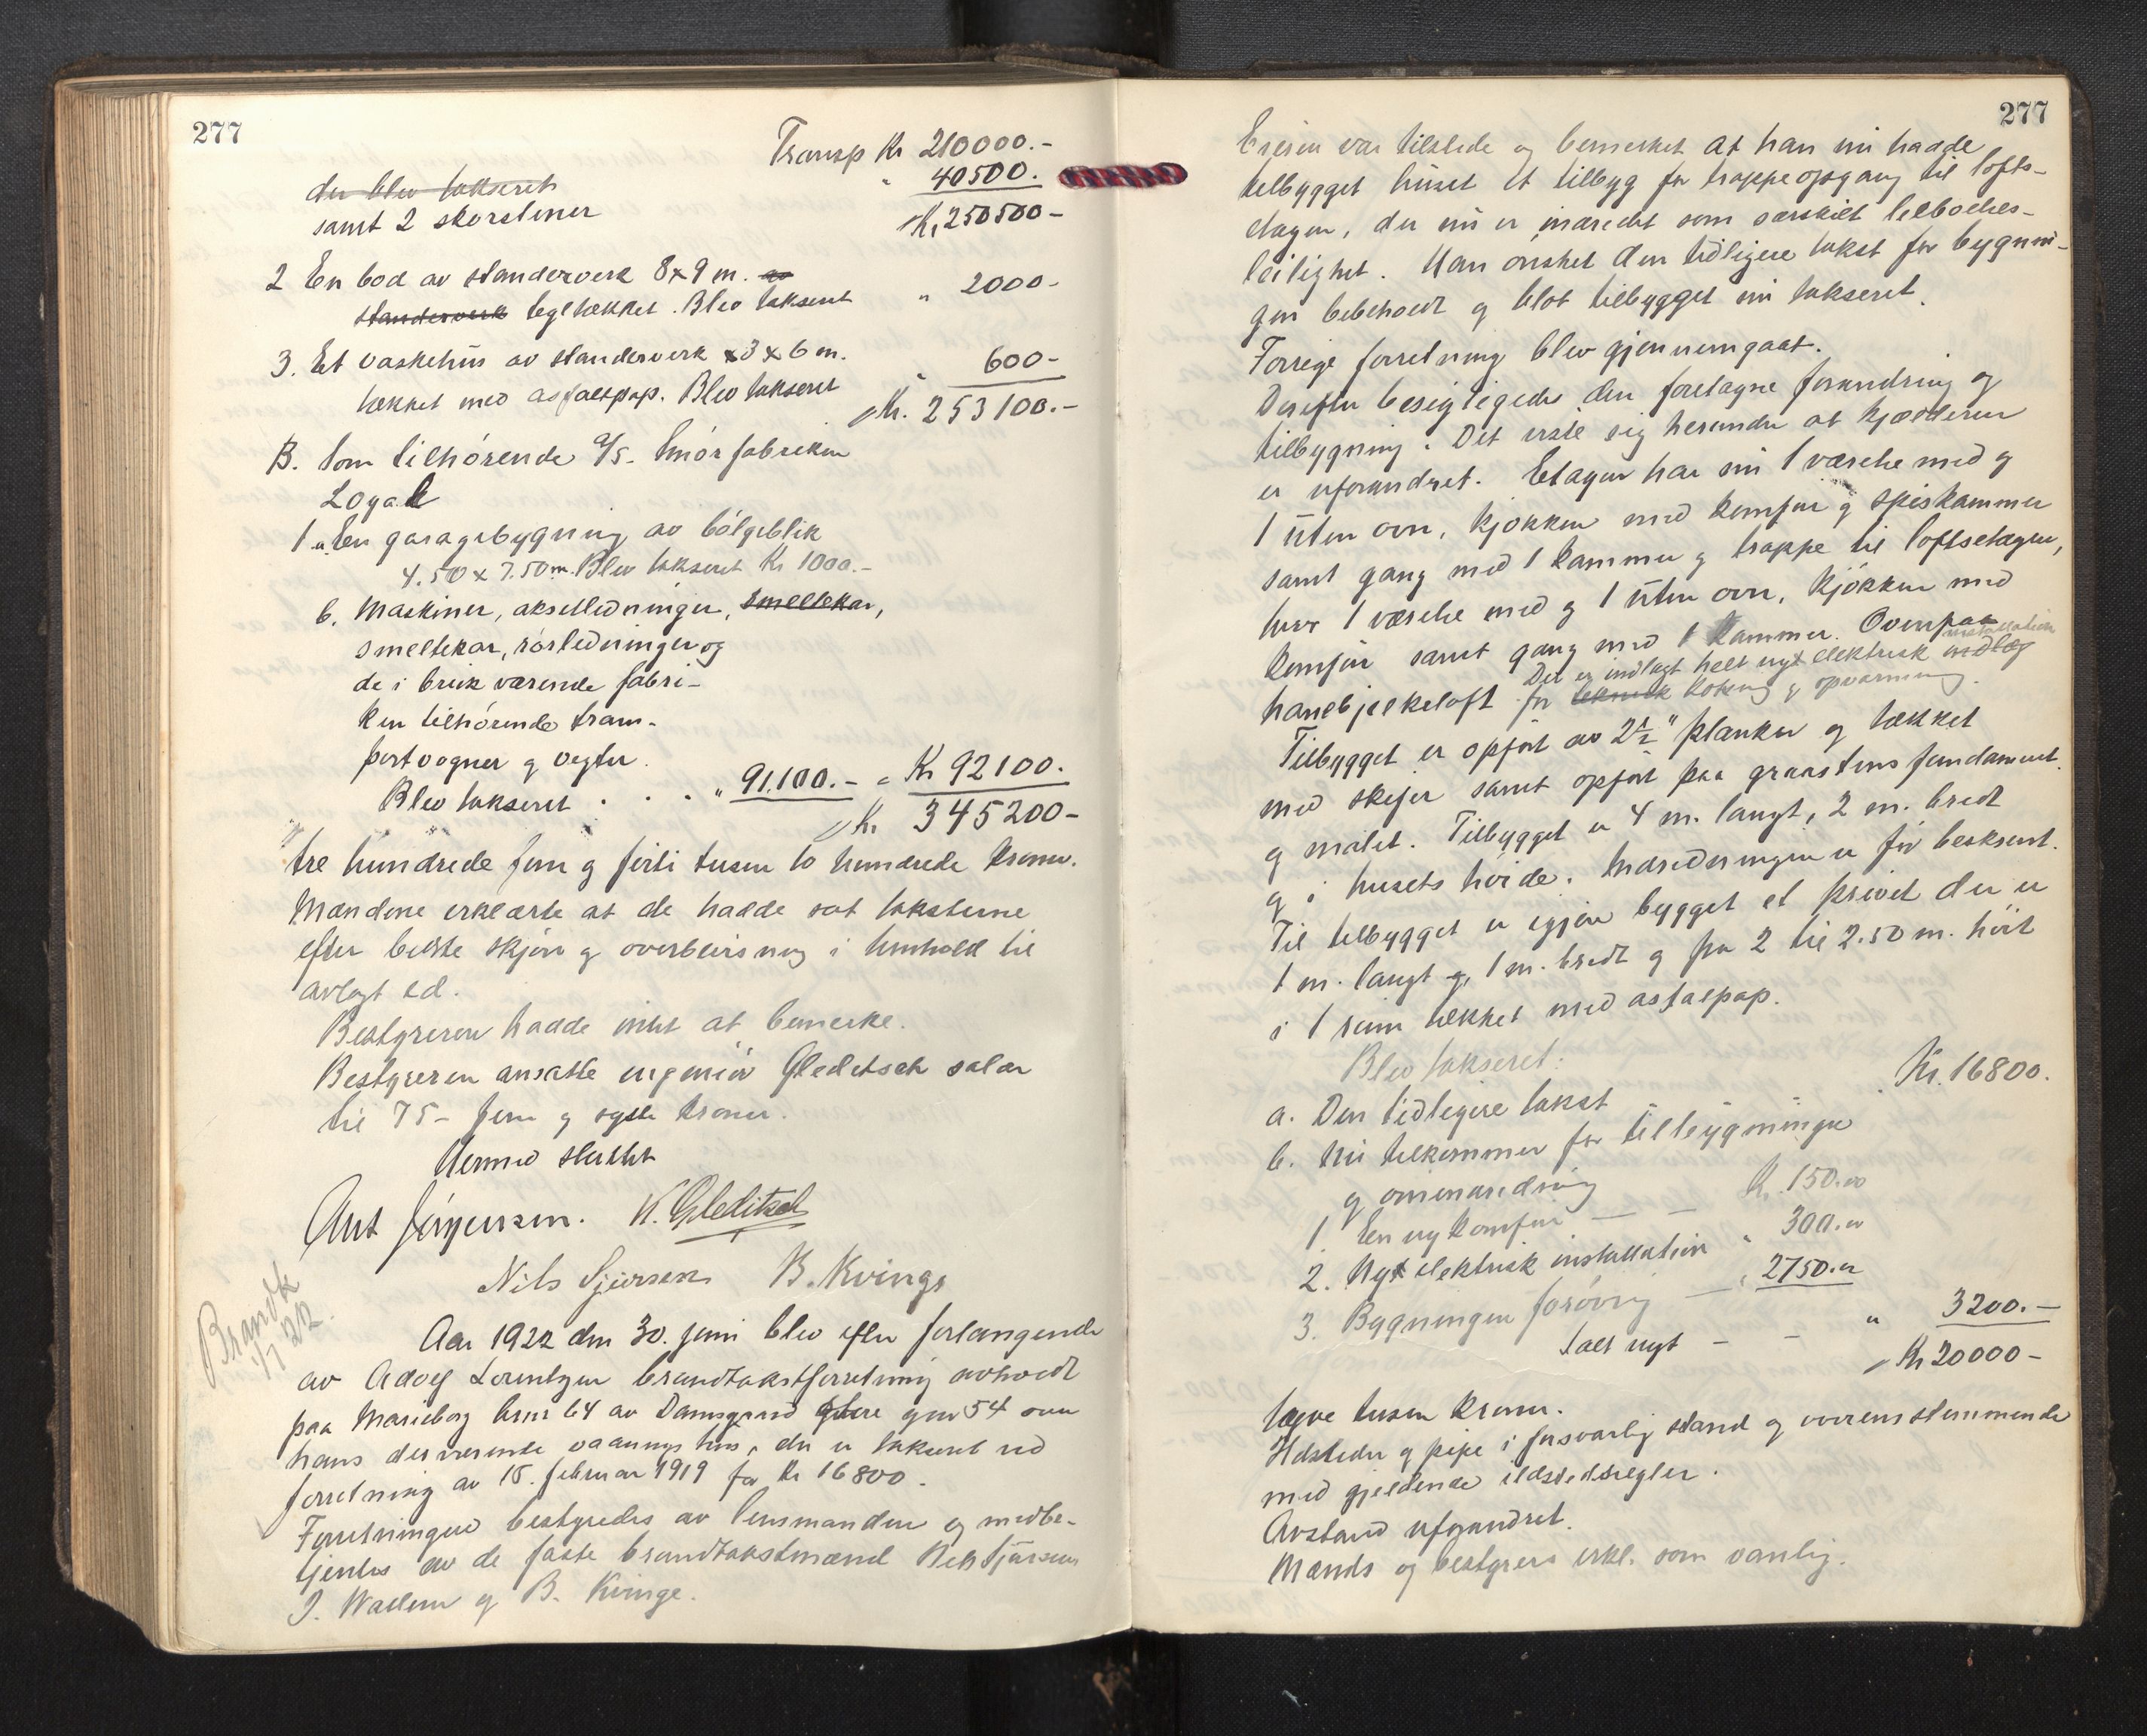 277
Transp Kr 210000.-
der blev takseret " 40500.
samt 2 skorstener Kr. 250500-
2 En bod av standerverk 8x9 m. av
standerverk tegltækket. Blev takseret " 2000-
3. Et vaskehus av standerverk x3x6 m.
tækket med asfaltpap. Blev takseret " 600-
Kr. 253100.-
B. Som tilhørende A/S. Smørfabriken
Loyal
1 a. En garagebygning av bølgeblik
4.50 x 7.50 m. Blev takseret Kr 1000.-
b. Maskiner, akselledninger, smeltekar,
smeltekar, rørledninger og
de i bruk værende fabri-
ken tilhørende trans-
portvogner og vegter.
Blev takseret . . . " 91.100.- = Kr 92100.
Kr 345200-
tre hundrede fem og førti tusen to hundrede kroner.
Mændene erklærte at de hadde sat taksterne
efter bedste skjøn og overbevisning i henhold til
avlagt ed.
Bestyreren hadde intet at bemerke.
Bestyreren ansatte ingeniør Gleditsch salær
til 75- fem og sytti kroner.
Hermed sluttet
Ant Jørgensen. K. Gleditsch
Nils Sjursen B. Kvinge
Brandt
1/7 22.
Aar 1922 den 30. juni blev efter forlangende
av Adolf Lorentzen brandtakstforretning avholdt
paa Marieborg brnr 64 av Damsgaard gnr 54 over
hans derværende vaanings hus, der er takseret ved
forretning av 15. februar 1919 for Kr 16800.
Forretningen bestyredes av lensmanden og medbe-
tjentes av de faste brandtakstmænd Nils Sjursen
J. Wallem og B. Kvinge.
277
Eieren var tilstede og bemerket at han nu hadde
tilbygget huset et tilbyg for trappeopgang til lofts-
etagen, der nu er indredet som særskilt beboelses-
leilighet. Han ønsket den tidligere takst for bygnin-
gen beboldt og blot tilbygget nu takseret.
Forrige forretning blev gjennemgaat.
Derefter besigtigedes den foretagne forandring og
tilbygning. Det viste sig herunder at kjælderen
er uforandret. Etagen har nu 1 værelse med og
1 uten ovn, kjøkken med komfur og spiskammer
samt gang med 1 kammer og trappe til loftsetagen,
hvor 1 værelse med og 1 uten ovn, kjøkken med
komfur samt gang med 1 kammer. Ovenpaa
installation
Det er indlagt helt nyt elektrisk indlæg
hanebjelkeloft. for teknisk kokning og opvarming.
Tilbygget er opført av 2½" planker og tækket
med skifer samt opført paa graastens fundament.
og malet. Tilbygget er 4 m. langt, 2 m. bredt
og i husets høide. Indredningen er før beskrevet.
Til tilbygget er igjen bygget et privet der er
1 m. langt og 1 m. bredt og fra 2 til 2.50 m. høit
i 1 rum tækket med asfaltpap.
Blev takseret:
a. Den tidligere takst Kr. 16800.
b. Nu tilkommer for tilbygningen
og ominnredning
1. En ny komfur — — Kr. 150.00
2. Nyt elektrisk installation " 300.00
3. Bygningen forøvrig — " 2750.00
Ialt nyt - - " 3200.—
Kr 20000-
tyve tusen kroner.
Ildsteder og pipe i forsvarlig stand og overensstemmende
med gjeldende ildstedsregler.
Avstand uforandret.
Mænds og bestyrers erkl. som vanlig.